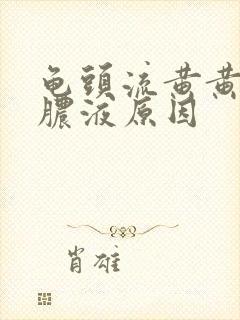 龟頭流黄黄
膿液原因
肖雄